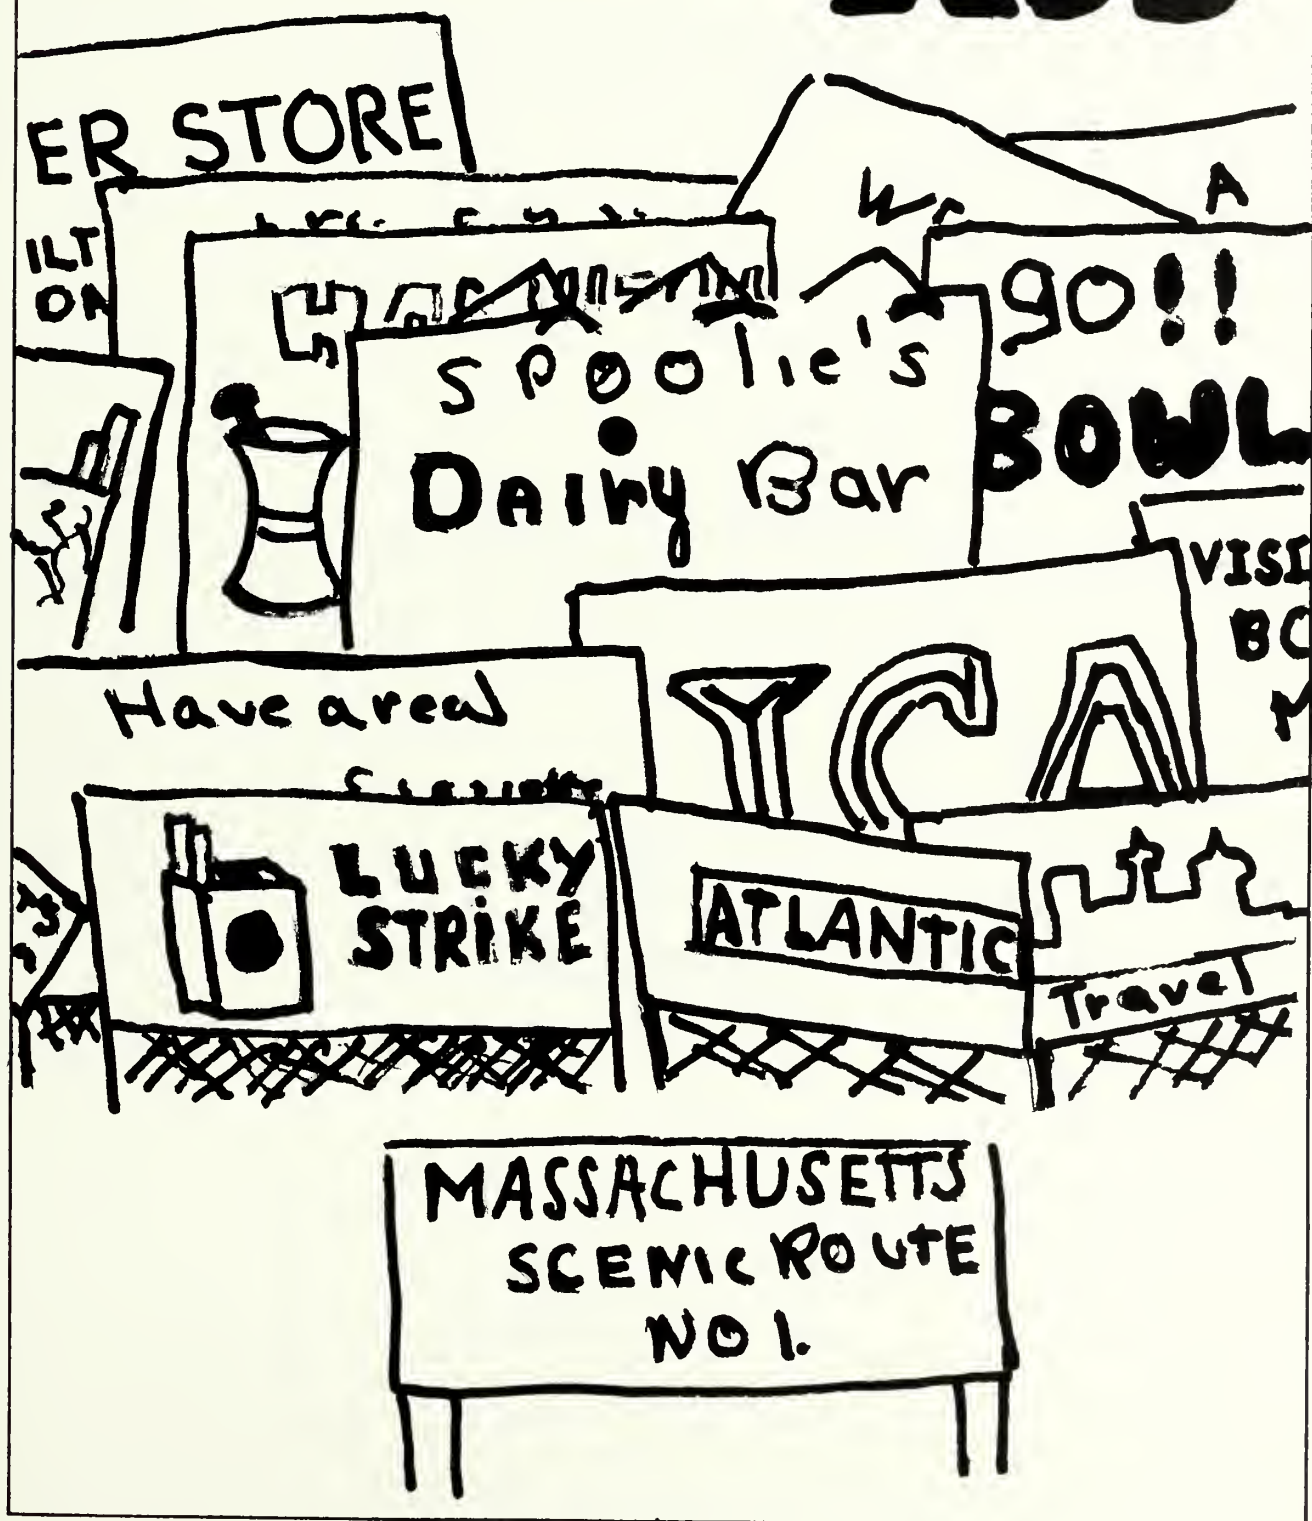 ER STORE
ILT
ON
W
A
go!!
BOWL
Spoolie's
Dairy Bar
VISI
BO
M
YCA
Have areal
LUCKY
STRIKE
ATLANTIC
Travel
MASSACHUSETTS
SCENIC ROUTE
NO 1.